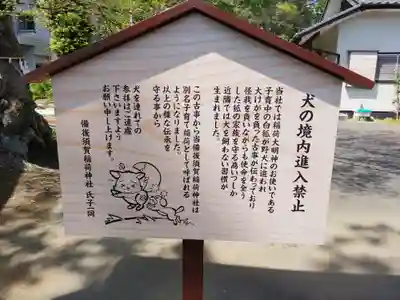 犬の境内進入禁止
当社では稲荷大明神のお使いである
子育中の白狐が野犬に追われ
大けがを負う古事が伝わっており
怪我を負いながらも使命を全う
した狐の家族を守る為いつしか
近隣では犬を飼わない習慣が
生まれました。
この古事から当備後須賀稲荷神社は
別名子育て稲荷として呼ばれる
ようになりました。
以上の様な伝承を
守る事から
犬を連れての
参拝はご遠慮
下さいますよう
お願い申し上げます。
備後須賀稲荷神社 氏子一同